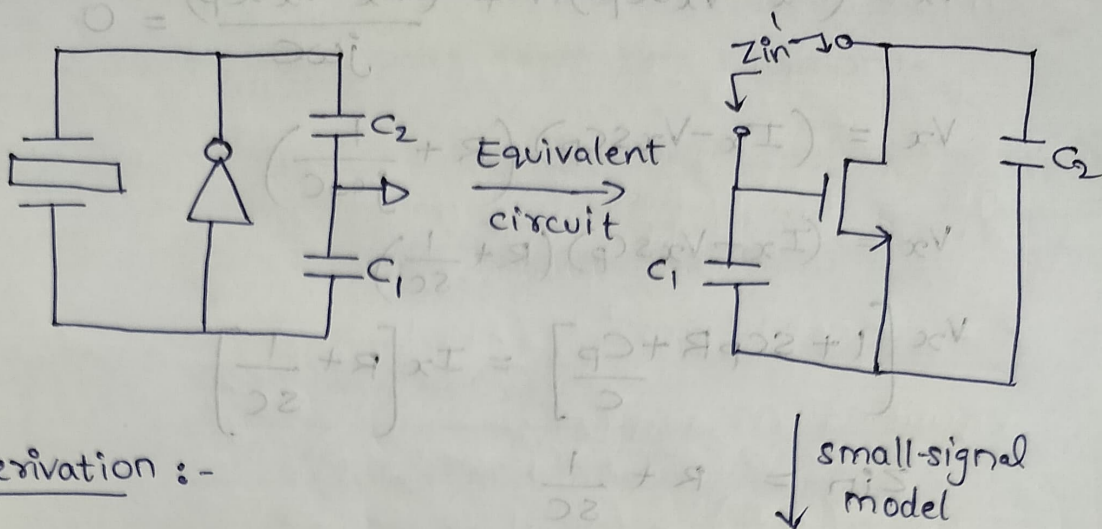 C2
C1
Equivalent
circuit
Zin
C1
C2
erivation :-
small-signal
model